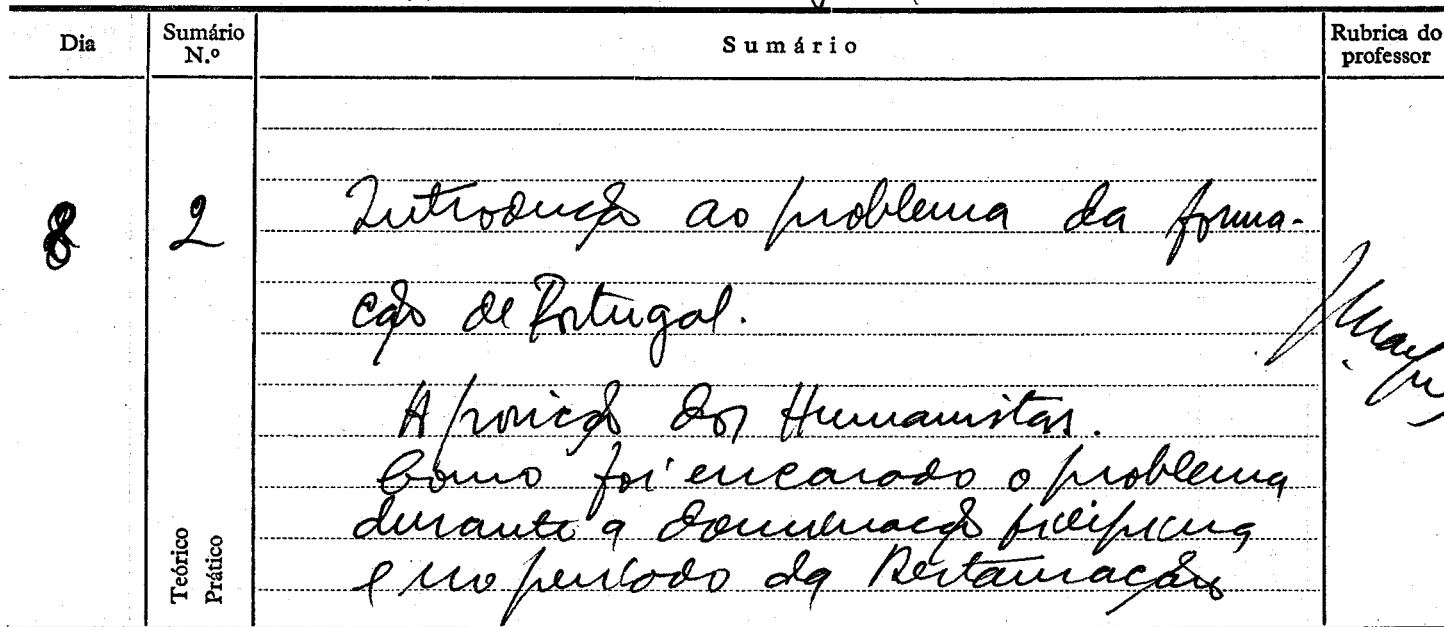 Dia Sumário N.º Sumário Rubrica do professor
8 2 Introdução ao problema da forma-
ção de Portugal.
A posição dos Humanistas.
Como foi encarado o problema
durante a dominação filipina
e no período da Restauração
Teórico
Prático